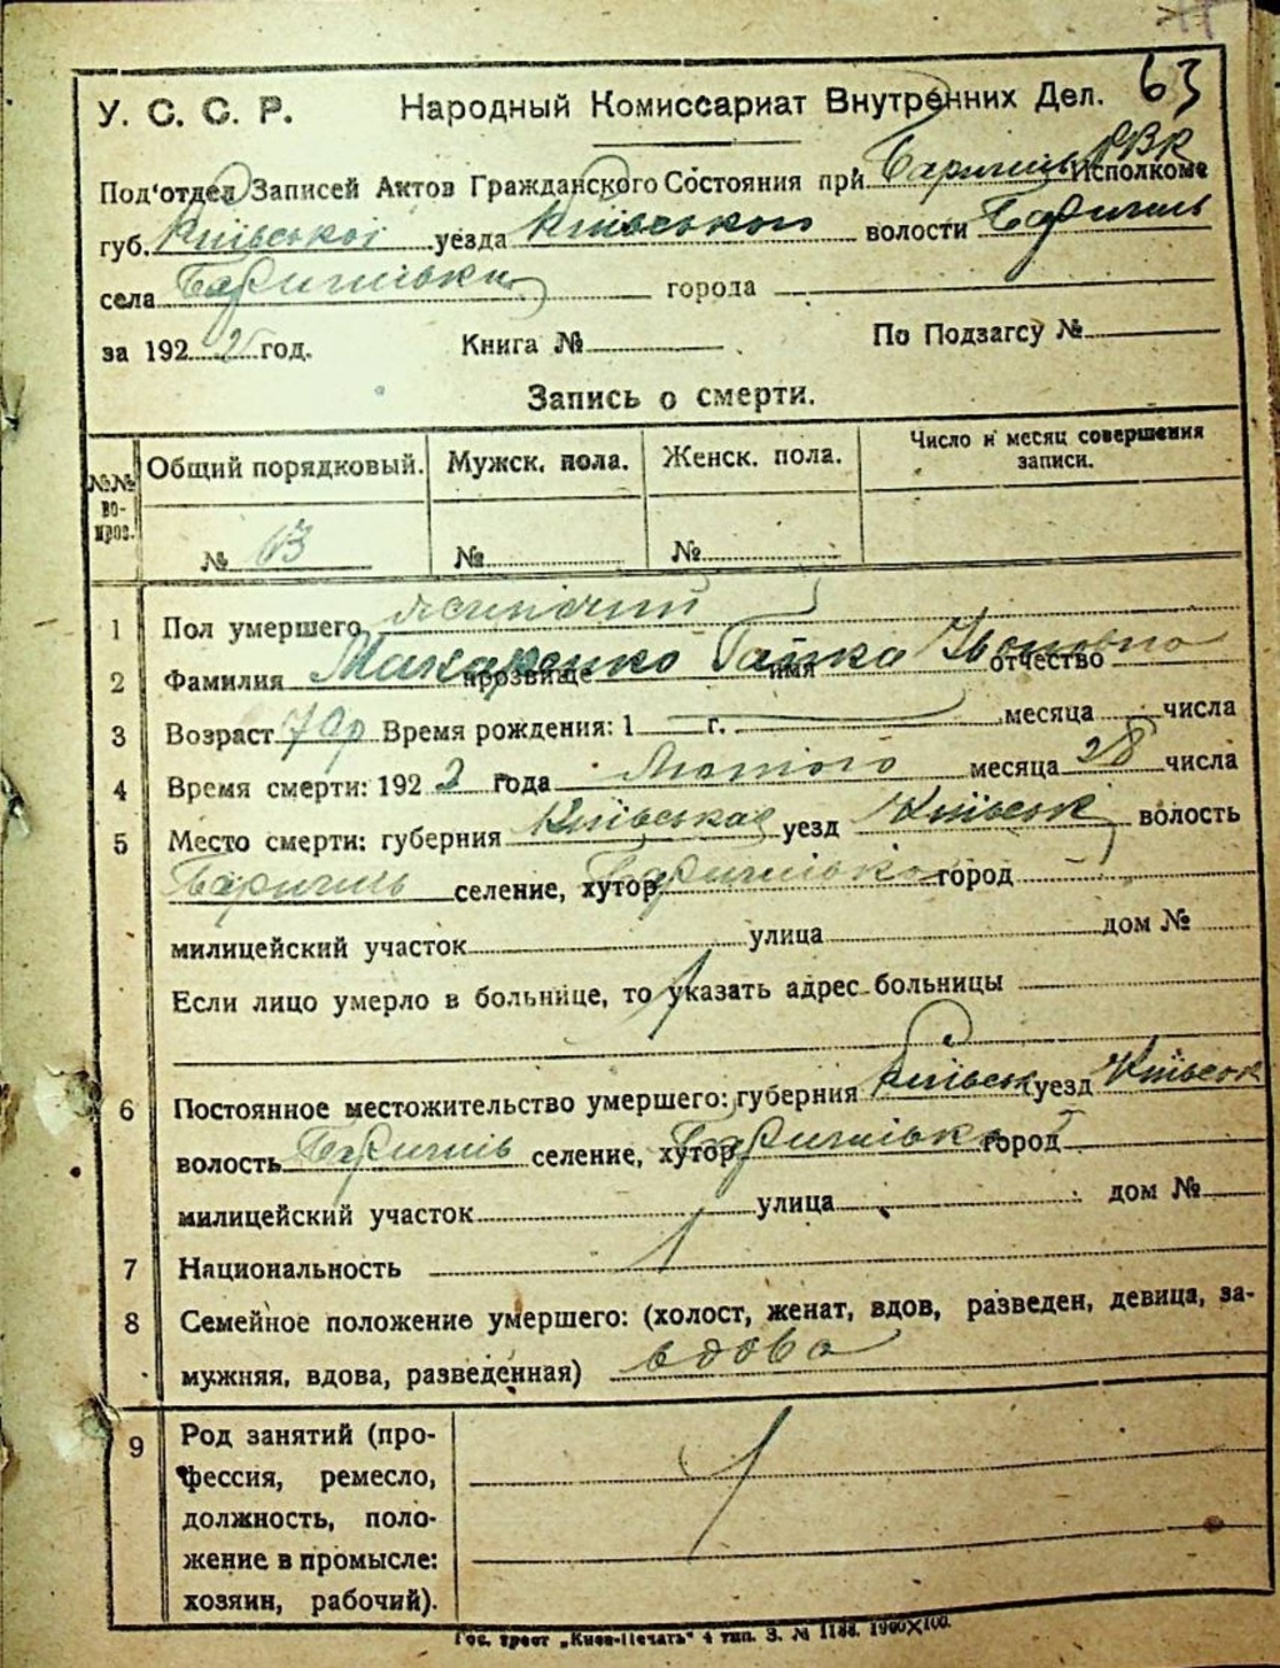 63
У. С. С. Р. Народный Комиссариат Внутренних Дел.
Под'отдел Записей Актов Гражданского Состояния при Баришль РВК Исполкоме
губ. Київської уезда Київського волости Баришль
села Баришівки города
за 192 год. Книга № По Подзагсу №
Запись о смерти.
№№ во-прос. Общий порядковый. Мужск. пола. Женск. пола. Число и месяц совершения записи.
№ 63 № №
1 Пол умершего жіночий
2 Фамилия Макаренко прозвище имя Гапка отчество Івановна
3 Возраст 70 р Время рождения: 1 г. месяца числа
4 Время смерти: 192 года Лютого месяца 28 числа
5 Место смерти: губерния Київська уезд Київськ волость
Баришль селение, хутор Баришівка город
милицейский участок улица дом №
Если лицо умерло в больнице, то указать адрес больницы
6 Постоянное местожительство умершего: губерния Київськ уезд Київськ
волость Баришів селение, хутор Баришівка город
милицейский участок улица дом №
7 Национальность
8 Семейное положение умершего: (холост, женат, вдов, разведен, девица, за-
мужняя, вдова, разведенная) вдова
9 Род занятий (про-
фессия, ремесло,
должность, поло-
жение в промысле:
хозяин, рабочий).
Гос. трест „Киев-Печать" 4 тип. З. № 1188. 1900×100.